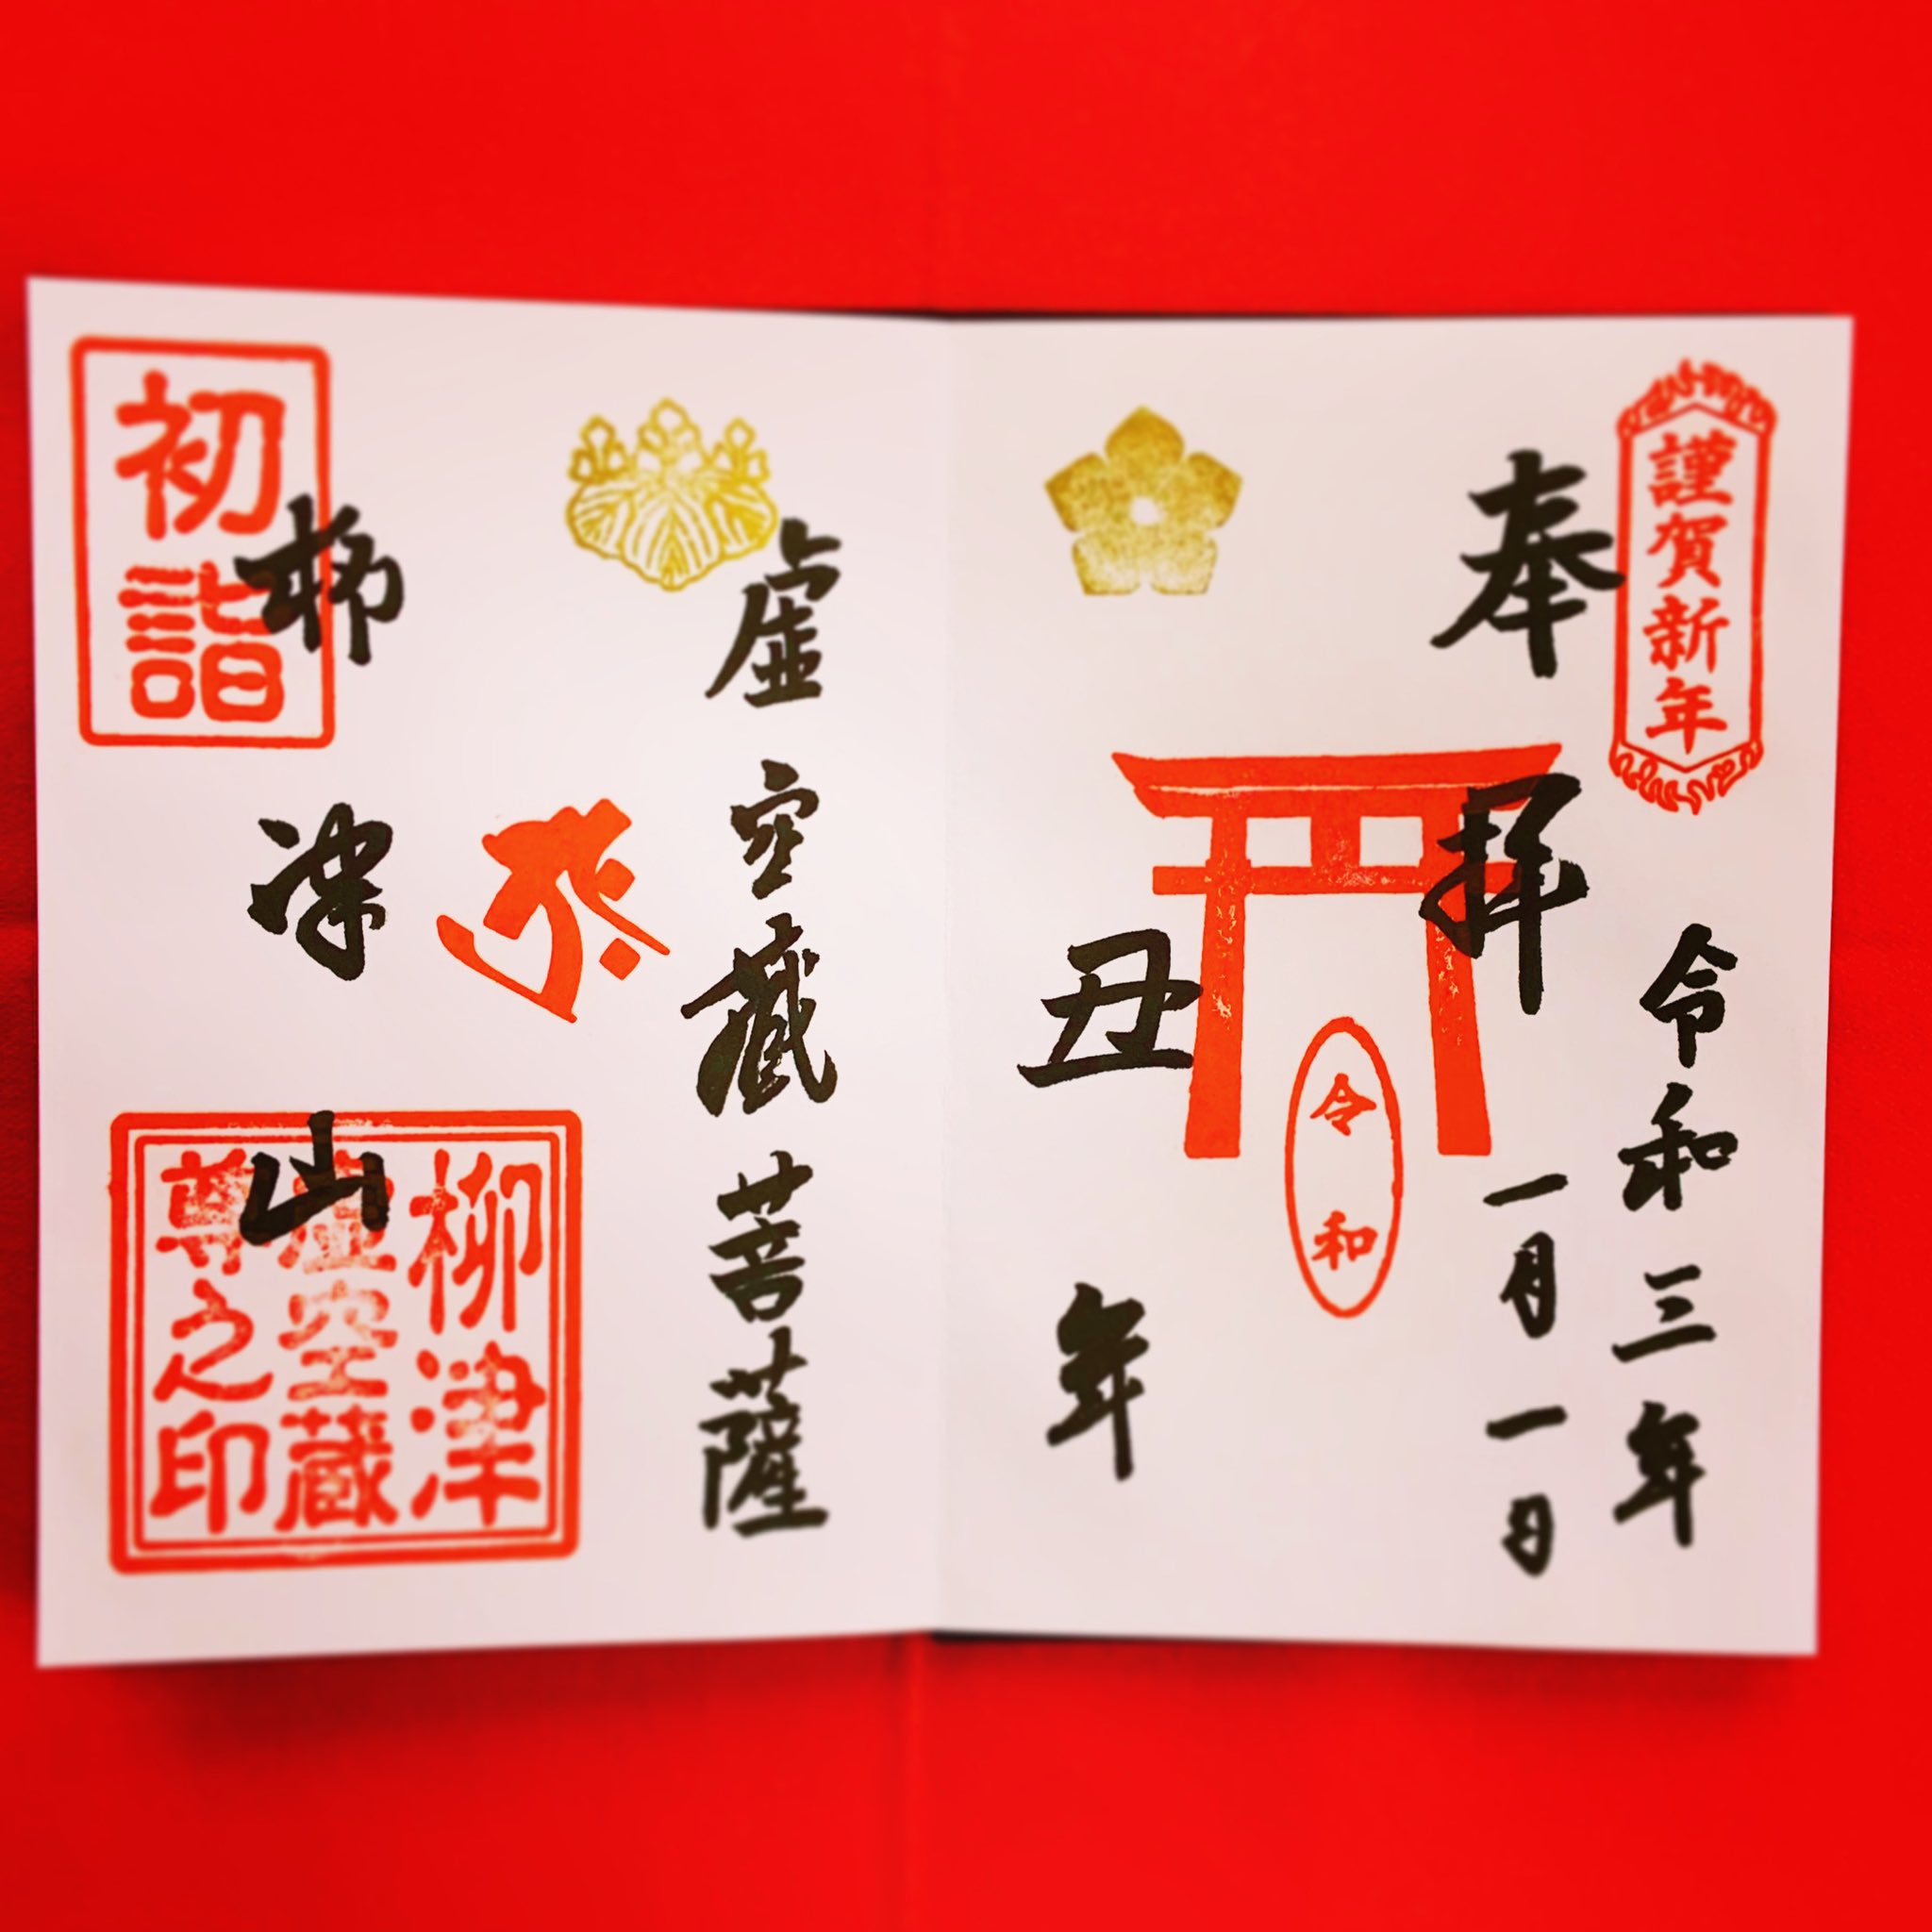 謹賀新年
奉拝
令和三年
一月一日
令和
丑年
虚空蔵菩薩
初詣
柳津山
柳津
虚空蔵
尊之印